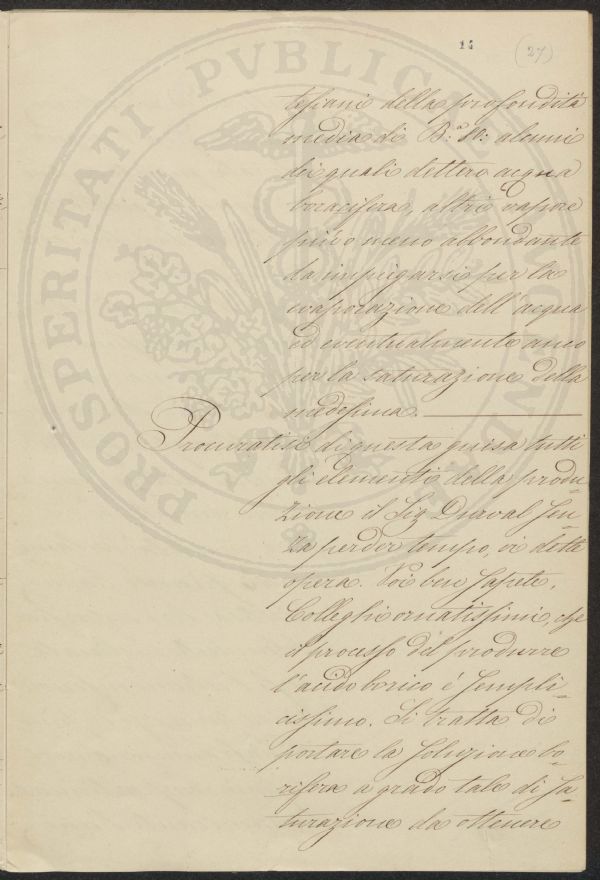 14
(27)
tesiani della profondità
media di B.ª 10: alcuni
dei quali dettero acqua
boracifera, altri vapore
più o meno abbondante
da impiegarsi per la
evaporazione dell'acqua
ed eventualmente anco
per la saturazione della
medesima.
Procuratisi di questa guisa tutti
gli elementi della produ-
zione il Sig Durval sen-
za perder tempo, vi dette
opera. Voi ben sapete,
Colleghi ornatissimi, che
il processo del produrre
l'acido borico é sempli-
cissimo. Si tratta di
portare la soluzione bo-
rifera a grado tale di sa-
turazione da ottenere
PROSPERITATI PVBLICAE